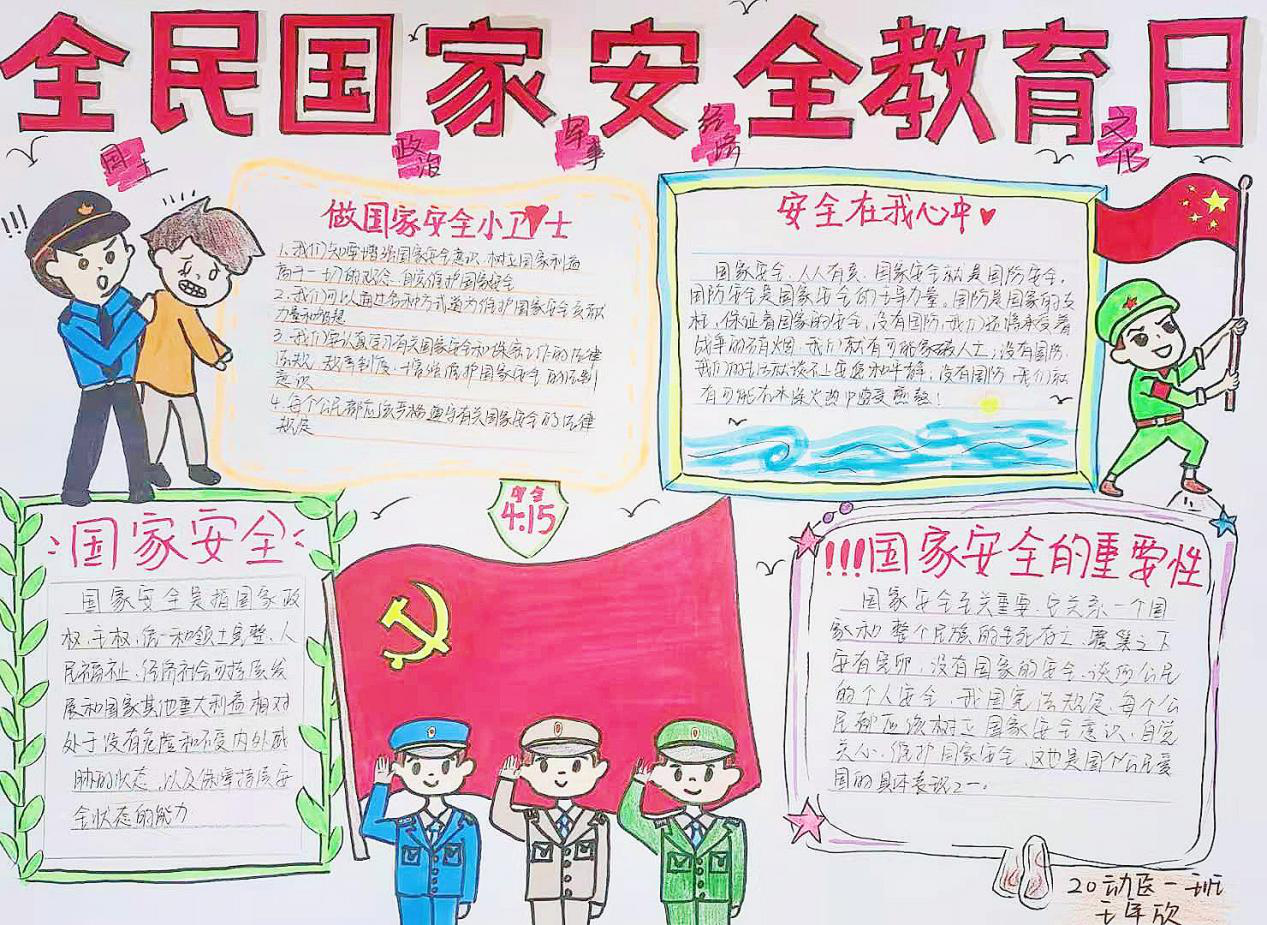 全民国家安全教育日
国土
政治
军事
经济
文化
做国家安全小卫士
1.我们知要增强国家安全意识,树立国家利益
高于一切的观念,自觉维护国家安全
2.我们可以通过各种方式道为维护国家安全贡献
力量和智慧
3.我们要认真学习有关国家安全和保家工作的法律
法规、规章制度,增强维护国家安全的法制
意识
4.每个公民都应该严格遵守有关国家安全的法律
规定
安全在我心中
国家安全,人人有责,国家安全就是国防安全,
国防安全是国家安全的主导力量。国防是国家的支
柱,保证着国家的安全,没有国防,我们还将承受着
战争的硝烟,我们就有可能家破人亡;没有国防,
我们的生活就谈不上安稳和平静,没有国防,我们就
有可能在水深火热中遭受煎熬!
国家安全
国家安全是指国家政
权、主权、统一和领土完整、人
民福祉、经济社会可持续发
展和国家其他重大利益相对
处于没有危险和不受内外威
胁的状态,以及保障持续安
全状态的能力
安全
4.15
!!!国家安全的重要性
国家安全至关重要,它关系一个国
家和整个民族的生死存亡,覆巢之下
安有完卵,没有国家的安全,谈何公民
的个人安全,我国宪法规定,每个公
民都应该树立国家安全意识,自觉
关心、维护国家安全,这也是国个公民爱
国的具体表现之一。
20动医一班
王年欣